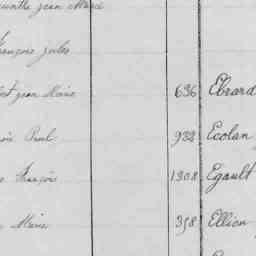 Jean Marie
François Jules
Jean Marie 636 Ebrard
Paul 932 Ecolan
François 1308 Egault
Marie 358 Ellien